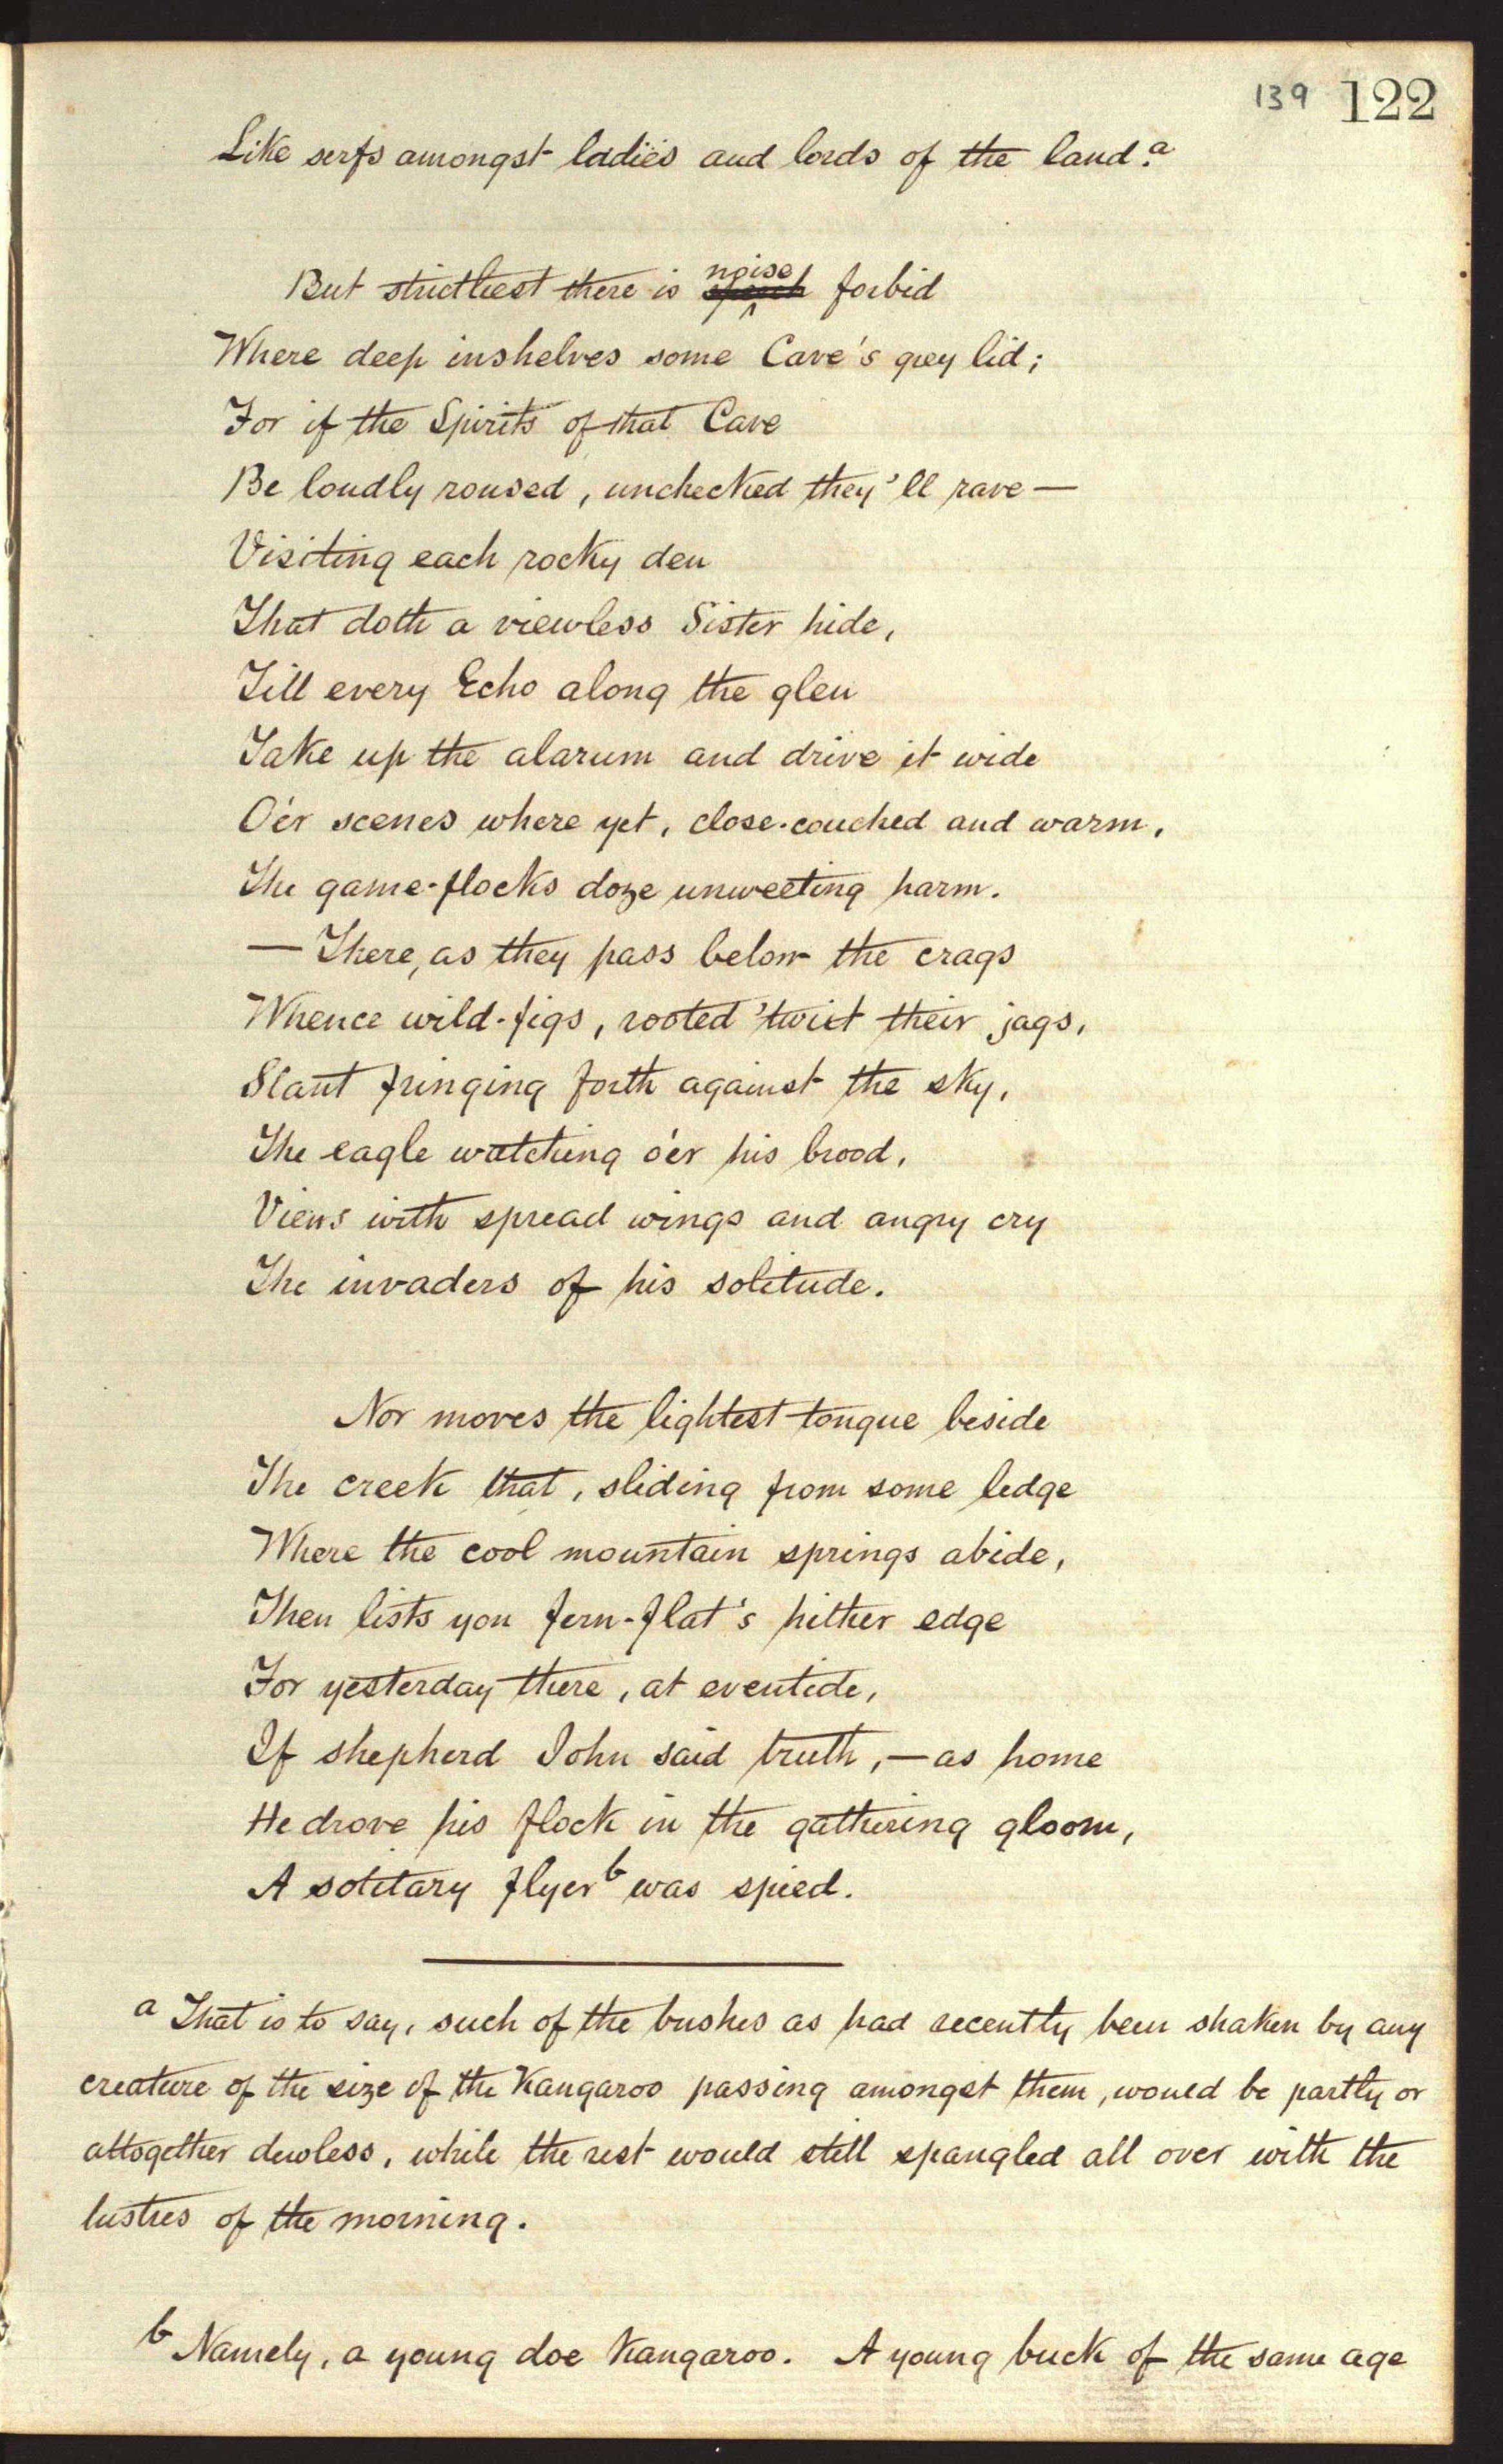 139 122
Like serfs amongst ladies and lords of the land.a
But strictliest there is speech noise forbid
Where deep inshelves some Cave's grey lid;
For if the Spirits of that Cave
Be loudly roused, unchecked they'll rave —
Visiting each rocky den
That doth a viewless Sister hide,
Till every Echo along the glen
Take up the alarum and drive it wide
O'er scenes where yet, close-couched and warm,
The game-flocks doze unweeting harm.
— There, as they pass below the crags
Whence wild-figs, rooted 'twixt their jags,
Slant fringing forth against the sky,
The eagle watching o'er his brood,
Views with spread wings and angry cry
The invaders of his solitude.
Nor moves the lightest tongue beside
The creek that, sliding from some ledge
Where the cool mountain springs abide,
Then lists yon fern-flat's hither edge
For yesterday there, at eventide,
If shepherd John said truth, — as home
He drove his flock in the gathering gloom,
A solitary flyer b was spied.
a That is to say, such of the bushes as had recently been shaken by any
creature of the size of the Kangaroo passing amongst them, would be partly or
altogether dewless, while the rest would still spangled all over with the
lustres of the morning.
b Namely, a young doe Kangaroo. A young buck of the same age